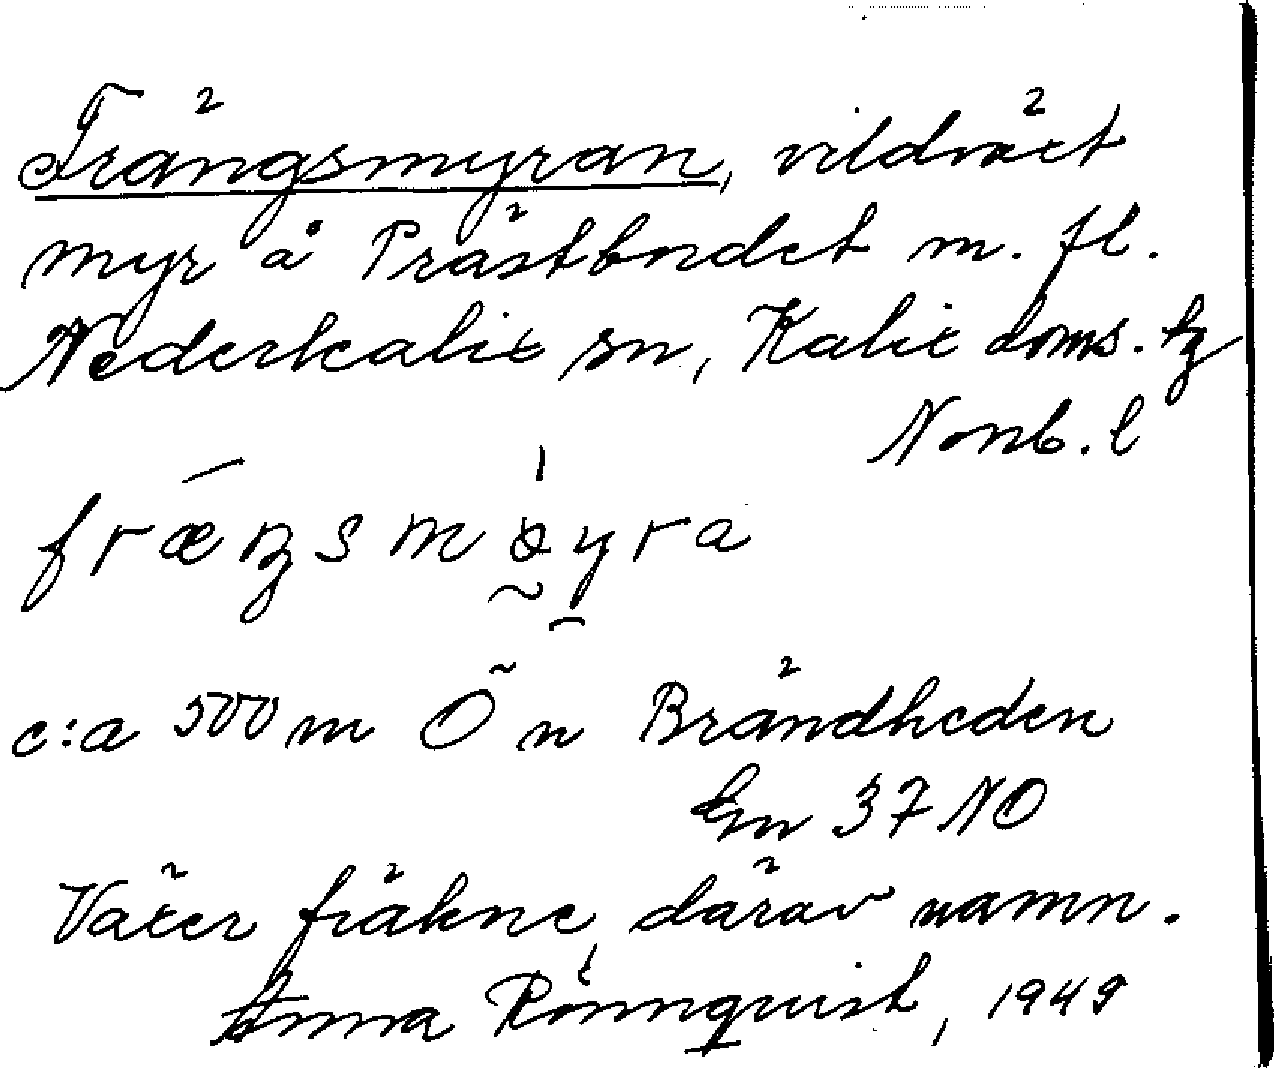 Frängsmyran, vildväxt
myr å Prästbordet m. fl.
Nederkalix sn, Kalix doms. tg
Norrb. l
fræŋsmöyra
c:a 500 m Ö n Brändheden
Gn 37 NO
Växer fräkne, därav namn.
Anna Rönnquist, 1949